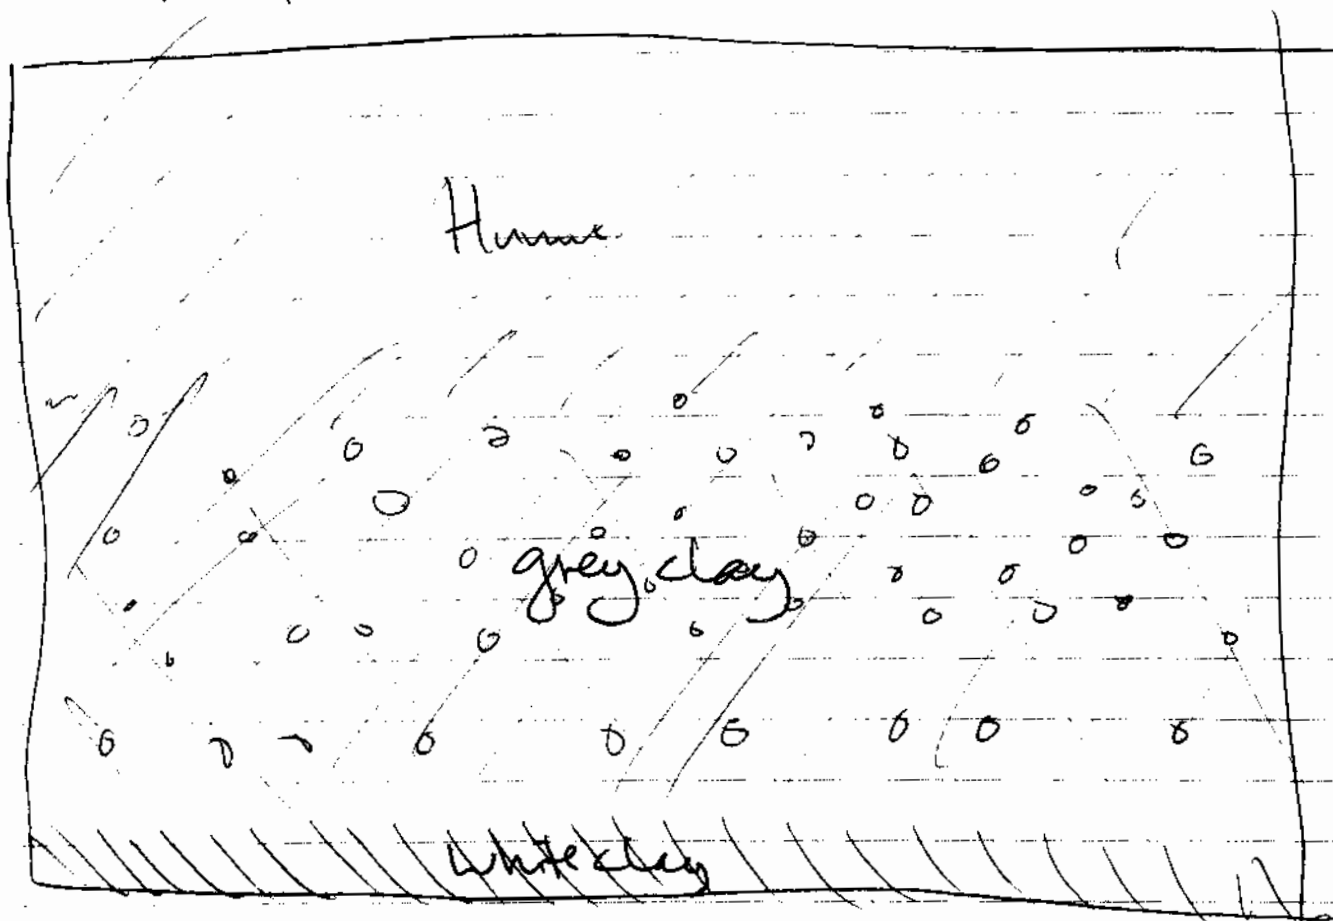 Humic
grey clay
white clay